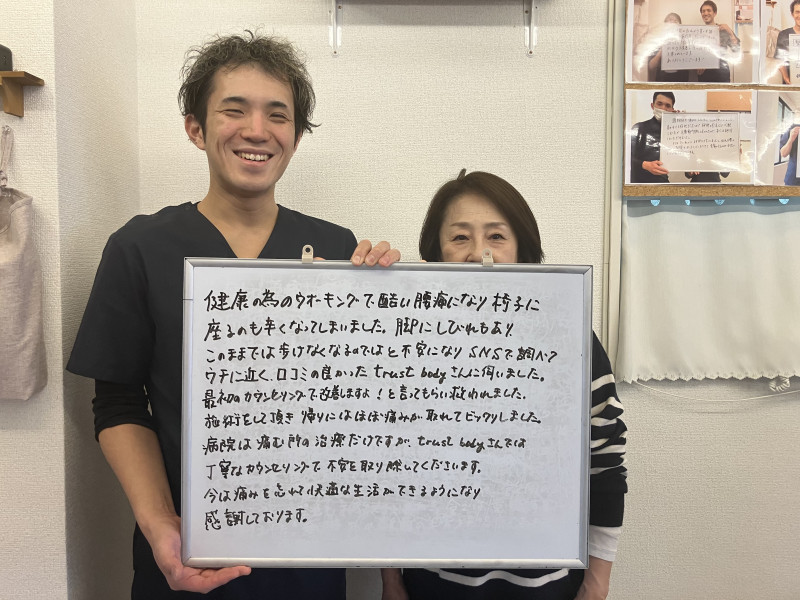 健康の為のウオーキングで酷い腰痛になり 椅子に
座るのも辛くなってしまいました。脚にしびれもあり
このままでは歩けなくなるのではと不安になり SNSで調べて
ウチに近く、口コミの良かった trust bodyさんに伺いました。
最初のカウンセリングで改善しますよ!と言ってもらい救われました。
施術をして頂き 帰りにはほぼ痛みが取れてビックリしました。
病院は痛む所の治療だけですが、trust bodyさんでは
丁寧なカウンセリングで 不安を取り除してくださいます。
今は痛みを忘れて快適な生活ができるようになり
感謝しております。